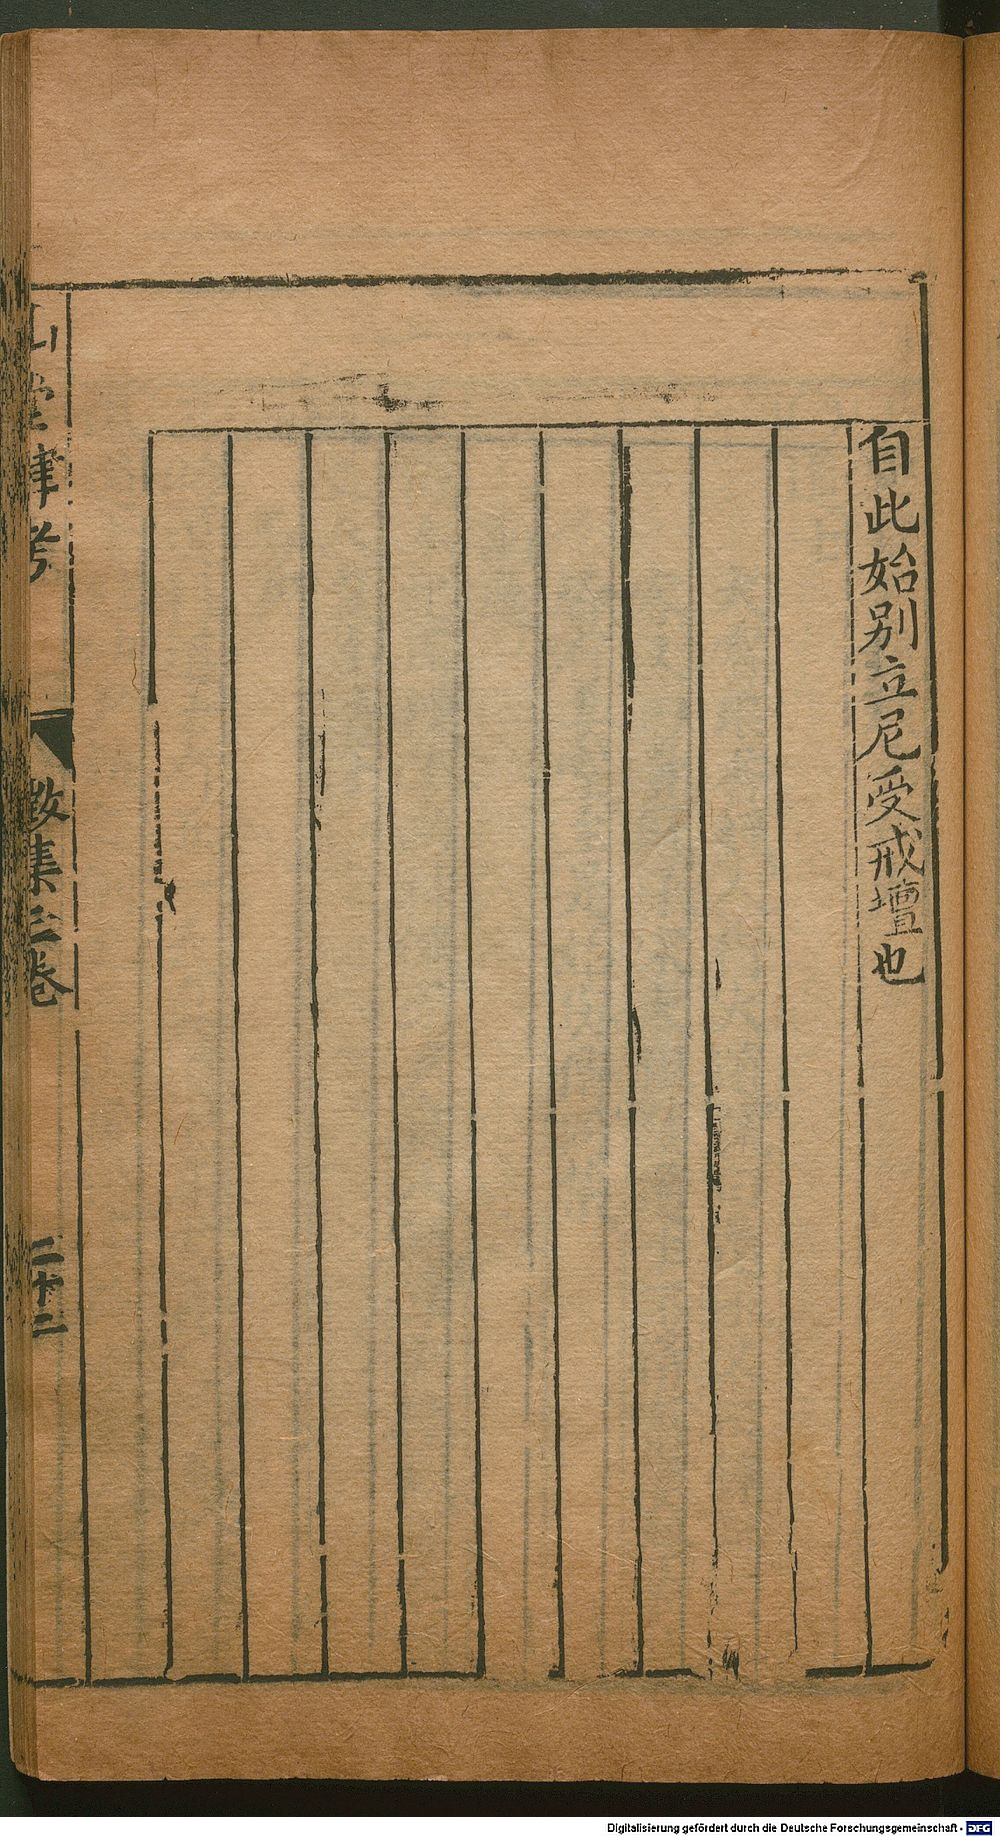 自此始別立尼受戒壇也
山堂肆考
徵集三卷
二十二
Digitalisierung gefördert durch die Deutsche Forschungsgemeinschaft - DFG